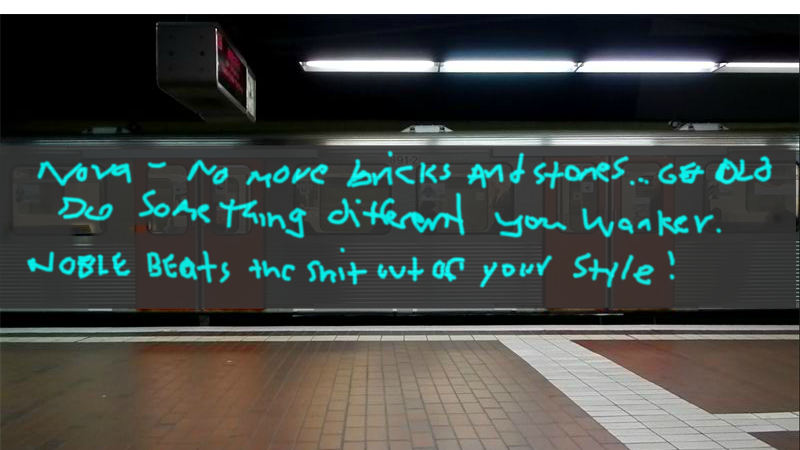 Nova - No more bricks And stones... GET OLD
Do Something different you Wanker.
NOBLE BEats the shit out OF your Style!